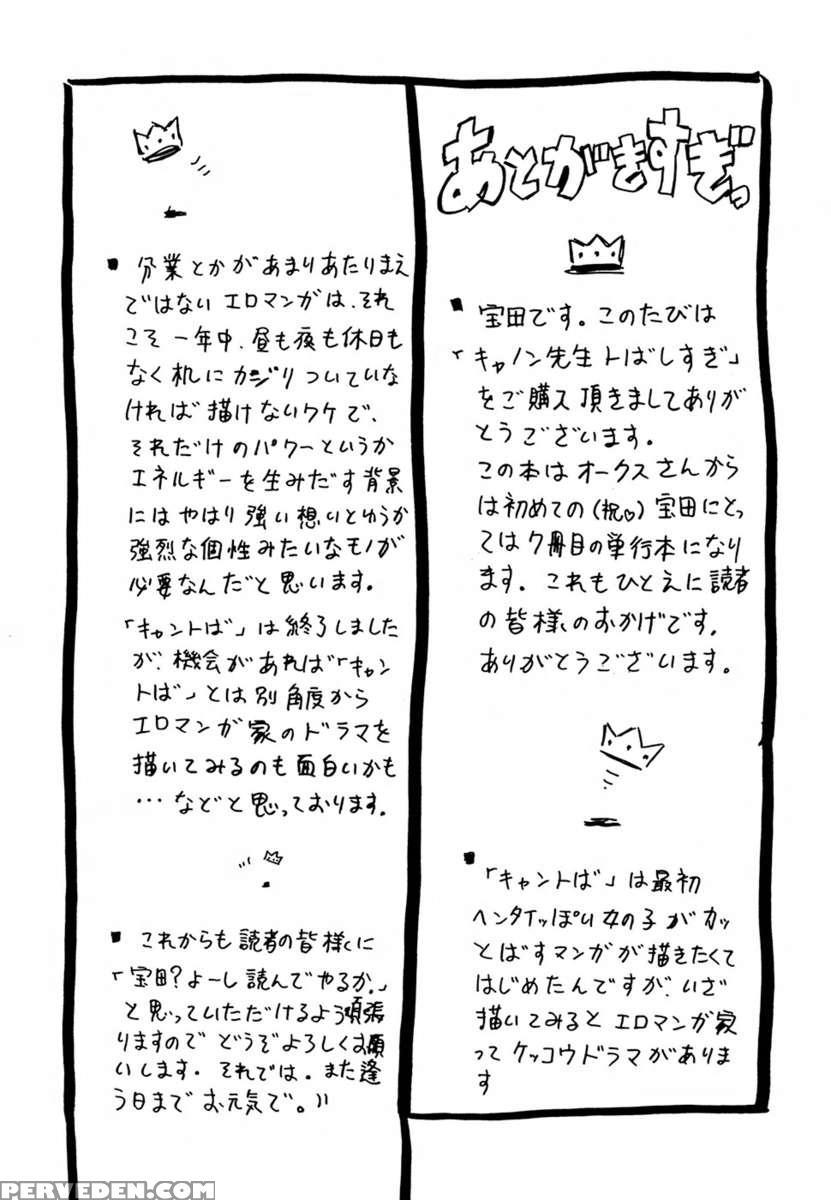 あとがきすぎっ
■ 宝田です。このたびは
「キャノン先生トばしすぎ」
をご購入頂きましてありが
とうございます。
この本はオークスさんから
は初めての(祝♡)宝田にとっ
ては7冊目の単行本になり
ます。これもひとえに読者
の皆様のおかげです。
ありがとうございます。
■ 「キャントば」は最初
ヘンタイッぽい女の子がカッ
とばすマンガが描きたくて
はじめたんですが、いざ
描いてみるとエロマンガ家
ってケッコウドラマがありま
す
■ 分業とかがあまりあたりまえ
ではないエロマンガは、それ
こそ一年中、昼も夜も休日も
なく机にカジりついていな
ければ描けないワケで、
それだけのパワーというか
エネルギーを生みだす背景
にはやはり強い想いとゆうか
強烈な個性みたいなモノが
必要なんだと思います。
「キャントば」は終了しました
が、機会があれば「キャン
トば」とは別角度から
エロマンガ家のドラマを
描いてみるのも面白いかも
…などと思っております。
■ これからも読者の皆様に
「宝田?よーし読んでやるか。」
と思っていただけるよう頑張
りますのでどうぞよろしくお願
いします。それでは。また逢
う日までお元気で。))
PERVEDEN.COM